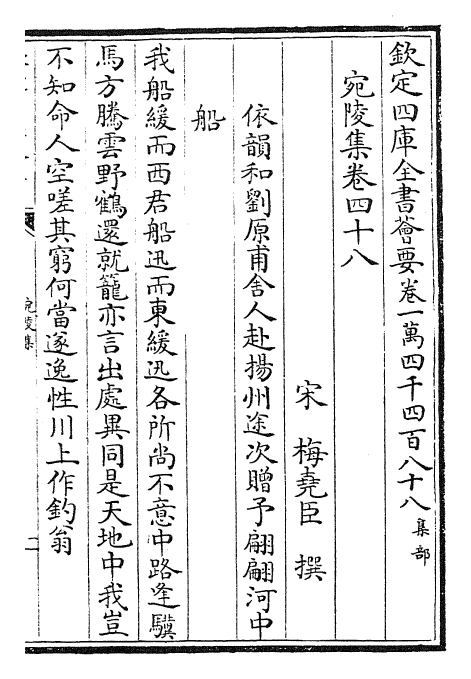 欽定四庫全書薈要卷一萬四千四百八十八 集部
宛陵集卷四十八
宋 梅堯臣 撰
依韻和劉原甫舍人赴揚州途次贈予翩翩河中
船
我船緩而西君船迅而東緩迅各所尚不意中路逢驥
馬方騰雲野鶴還就籠亦言出處異同是天地中我豈
不知命人空嗟其窮何當遂逸性川上作釣翁
宛陵集